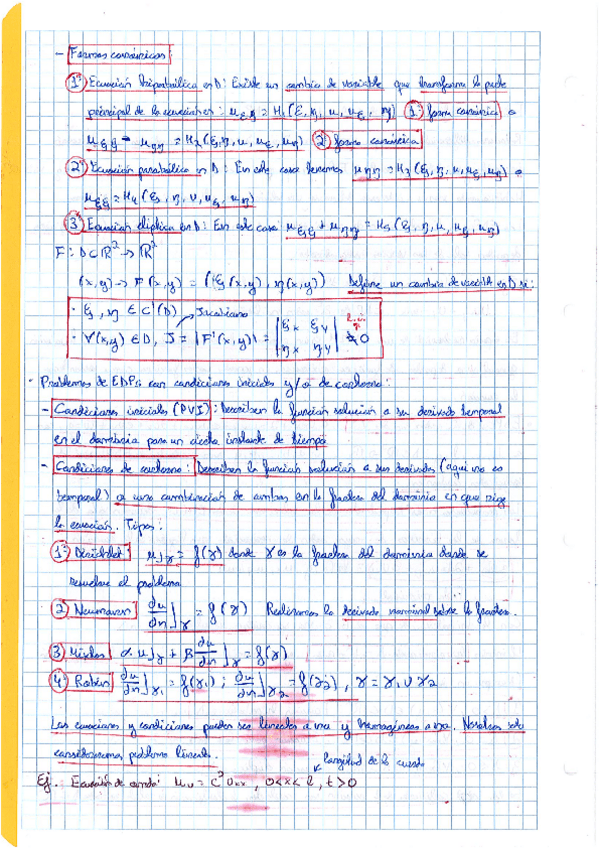 - Formas canónicas:
1º Ecuación hiperbólica en D: Existe un cambio de variable que transforma la parte
principal de la ecuación en: u_ξη = H₁(ξ, η, u, u_ξ, u_η) 1ª forma canónica o
u_ξξ - u_ηη = H₂(ξ, η, u, u_ξ, u_η) 2ª forma canónica
2º Ecuación parabólica en D: En este caso tenemos u_ηη = H₃(ξ, η, u, u_ξ, u_η) o
u_ξξ = H₄(ξ, η, u, u_ξ, u_η)
3º Ecuación elíptica en D: En este caso: u_ξξ + u_ηη = H₅(ξ, η, u, u_ξ, u_η)
F: D⊂ℝ² → ℝ²
(x,y) → F(x,y) = (ξ(x,y), η(x,y)) Define un cambio de variable en D si:
· ξ, η ∈ C¹(D) Jacobiano
· ∀(x,y) ∈ D, J = |F'(x,y)| = |ξx ξy ; ηx ηy| ≠ 0
- Problemas de EDPs con condiciones iniciales y/o de contorno:
- Condiciones iniciales (PVI): Describen la función solución o su derivada temporal
en el dominio para un cierto instante de tiempo
- Condiciones de contorno: Describen la función solución o sus derivadas (aquí no es
temporal) o una combinación de ambas en la frontera del dominio en que rige
la ecuación. Tipos:
1º Dirichlet: u]γ = f(γ) donde γ es la frontera del dominio donde se
resuelve el problema
2) Neumann: ∂u/∂n]γ = f(γ) Realizamos la derivada normal sobre la frontera.
3) Mixtas α·u]γ + β ∂u/∂n]γ = f(γ)
4º Robin ∂u/∂n]γ₁ = f(γ₁); ∂u/∂n]γ₂ = f(γ₂), γ = γ₁ ∪ γ₂
Las ecuaciones y condiciones pueden ser lineales o no y homogéneas o no. Nosotros solo
consideraremos problemas lineales. longitud de la cuerda
Ej. Ecuación de onda: u_tt = c² u_xx, 0<x<l, t>0